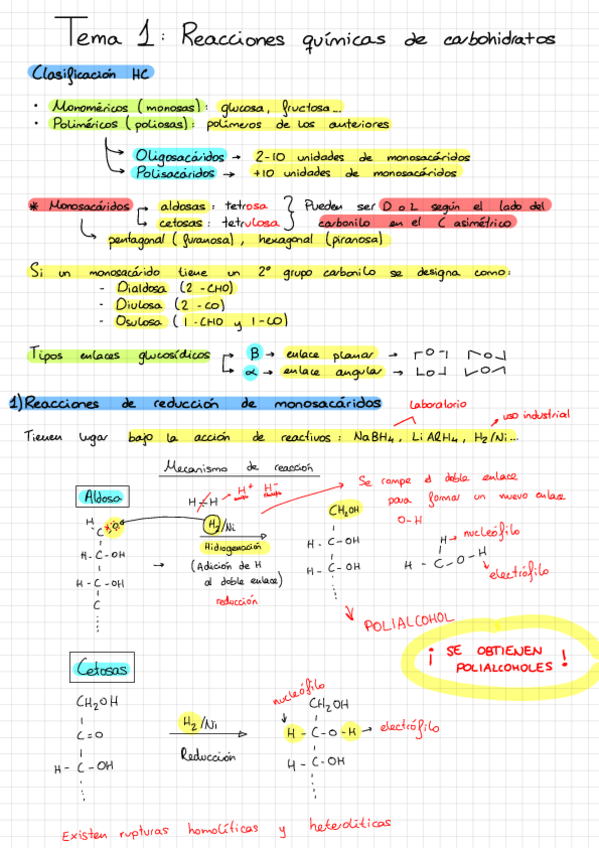 Tema 1: Reacciones químicas de carbohidratos
Clasificación HC
• Monoméricos (monosas): glucosa, fructosa...
• Poliméricos (poliosas): polímeros de los anteriores
Oligosacáridos → 2-10 unidades de monosacáridos
Polisacáridos → +10 unidades de monosacáridos
* Monosacáridos aldosas: tetrosa Pueden ser D o L según el lado del
cetosas: tetrulosa carbonilo en el C asimétrico
pentagonal (furanosa), hexagonal (piranosa)
Si un monosacárido tiene un 2º grupo carbonilo se designa como:
- Dialdosa (2 -CHO)
- Diulosa (2 -CO)
- Osulosa (1 -CHO y 1 -CO)
Tipos enlaces glucosídicos β → enlace planar → -O- -O-
α → enlace angular → -O- -O-
1) Reacciones de reducción de monosacáridos
Laboratorio
uso industrial
Tienen lugar bajo la acción de reactivos: NaBH4, LiAlH4, H2/Ni...
Mecanismo de reacción
Se rompe el doble enlace
para formar un nuevo enlace
O-H
Aldosa
H-H
H+ H-
H
C=O
H2/Ni
CH2OH
Hidrogenación
(Adición de H
al doble enlace)
reducción
H-C-OH
H-C-OH
C
H-C-OH
H-C-OH
H → nucleófilo
H-C-O-H
electrófilo
POLIALCOHOL
¡SE OBTIENEN
POLIALCOHOLES!
Cetosas
CH2OH
C=O
H-C-OH
H2/Ni
Reducción
nucleófilo
CH2OH
H-C-O-H → electrófilo
H-C-OH
Existen rupturas homolíticas y heterolíticas